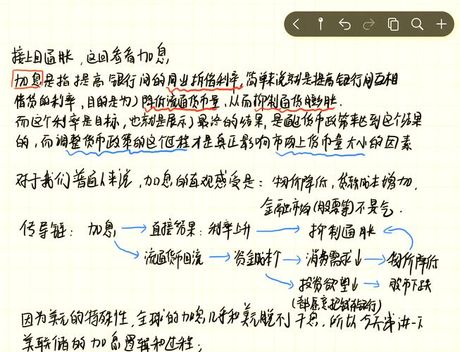 接上回通胀，这回看看加息，
加息是指提高银行间的同业拆借利率，简单来说就是提高银行间互相
借贷的利率，目的是为了降低流通货币量，从而抑制通货膨胀.
而这个利率是目标，也就是展示了最终的结果，是通过货币政策达到这个结果
的，而调整货币政策的这个过程才是真正影响市场上货币量大小的因素
对于我们普通人来说，加息的直观感受是：物价降低，贷款成本增加，
金融市场（股票等）不景气.
传导链：加息 → 直接结果：利率上升 → 抑制通胀
→ 流通货币回流 → 资金成本↑ → 消费需求↓ → 物价降低
→ 投资欲望↓ → 股市下跌
因为美元的特殊性，全球的加息几乎和美元脱不了干系，所以今天讲一下
美联储的加息逻辑和过程：